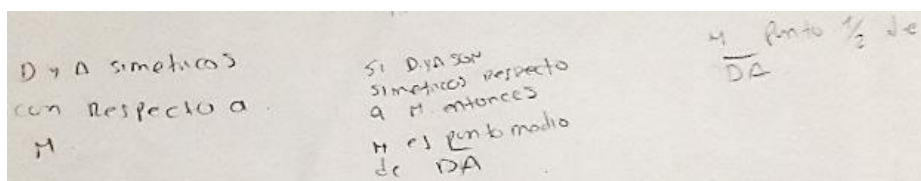 D y A simetricos
con Respecto a.
M
Si D y A son
simetricos Respecto
a M entonces
M es punto medio
de DA
M Punto 1/2 de
DA